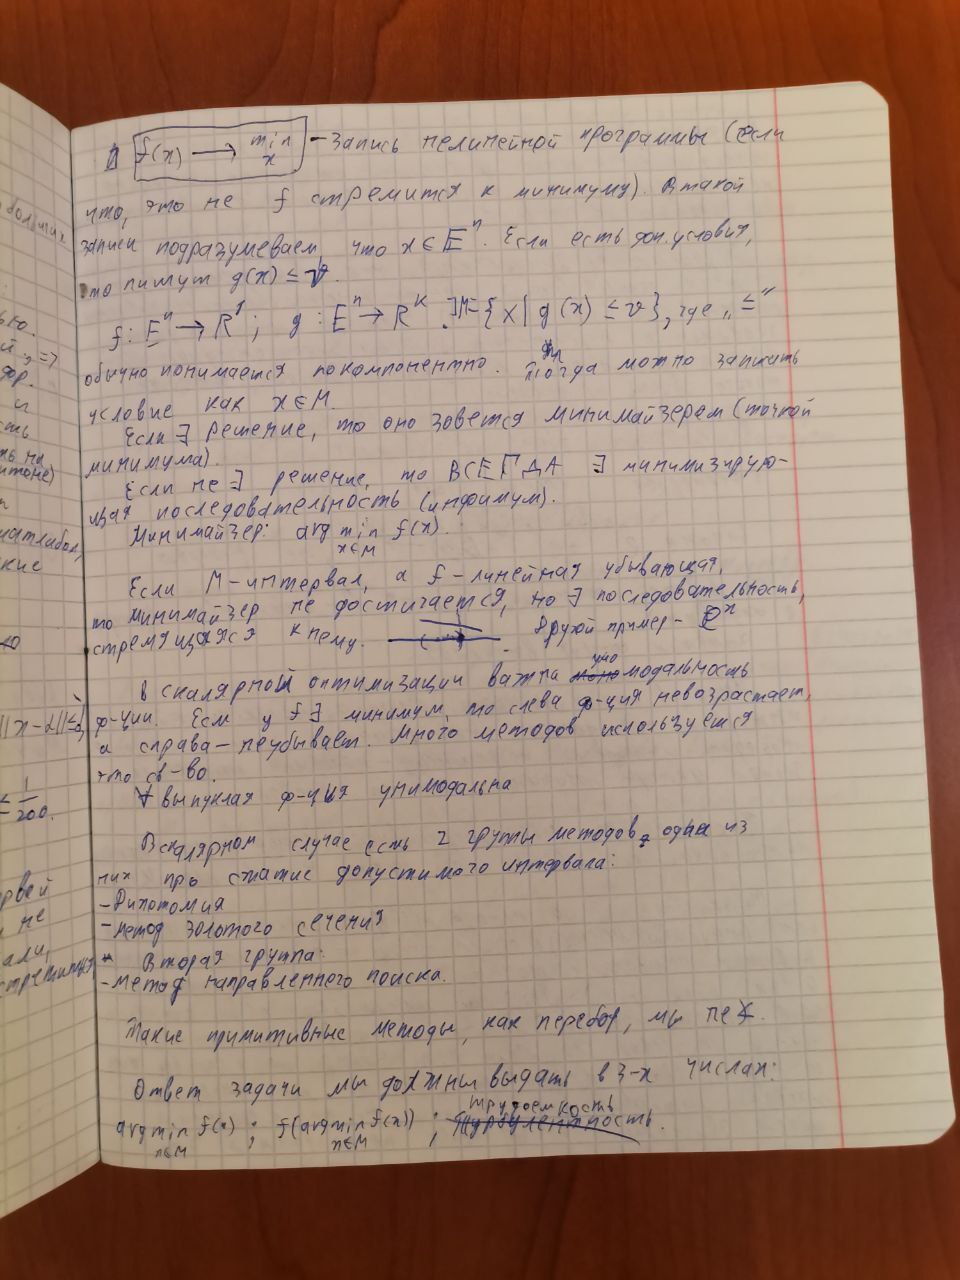 f(x) → min x – Запись нелинейной программы (если
что, это не f стремится к минимуму). В такой
записи подразумеваем, что x ∈ Eⁿ. Если есть доп. условия,
то пишут g(x) ≤ v.
f: Eⁿ → R¹; g: Eⁿ → Rᵏ. ]M={x| g(x) ≤ v}, где „≤"
обычно понимается покомпонентно. Тогда можно записать
условие как x∈M.
Если ∃ решение, то оно зовется минимайзером (точкой
минимума).
Если не ∃ решение, то ВСЕГДА ∃ минимизирую-
щая последовательность (инфимум).
Минимайзер: arg min x∈M f(x).
Если M – интервал, а f – линейная убывающая,
то минимайзер не достигается, но ∃ последовательность,
стремящаяся к нему. Другой пример – eˣ
В скалярной оптимизации важна унимодальность
ф-ции. Если у f ∃ минимум, то слева ф-ция невозрастает,
а справа – неубывает. Много методов используется
это св-во.
∀ выпуклая ф-ция унимодальна
В скалярном случае есть 2 группы методов, одна из
них про сжатие допустимого интервала:
- Дихотомия
- метод золотого сечения
Вторая группа:
- метод направленного поиска.
Такие примитивные методы, как перебор, мы не
Ответ задачи мы должны выдать в 3-х числах:
трудоемкость
arg min x∈M f(x); f(arg min x∈M f(x));
ью.
=>
и
сть
кие
||x-α||=
≤ 1/200.
рвой
не
али,